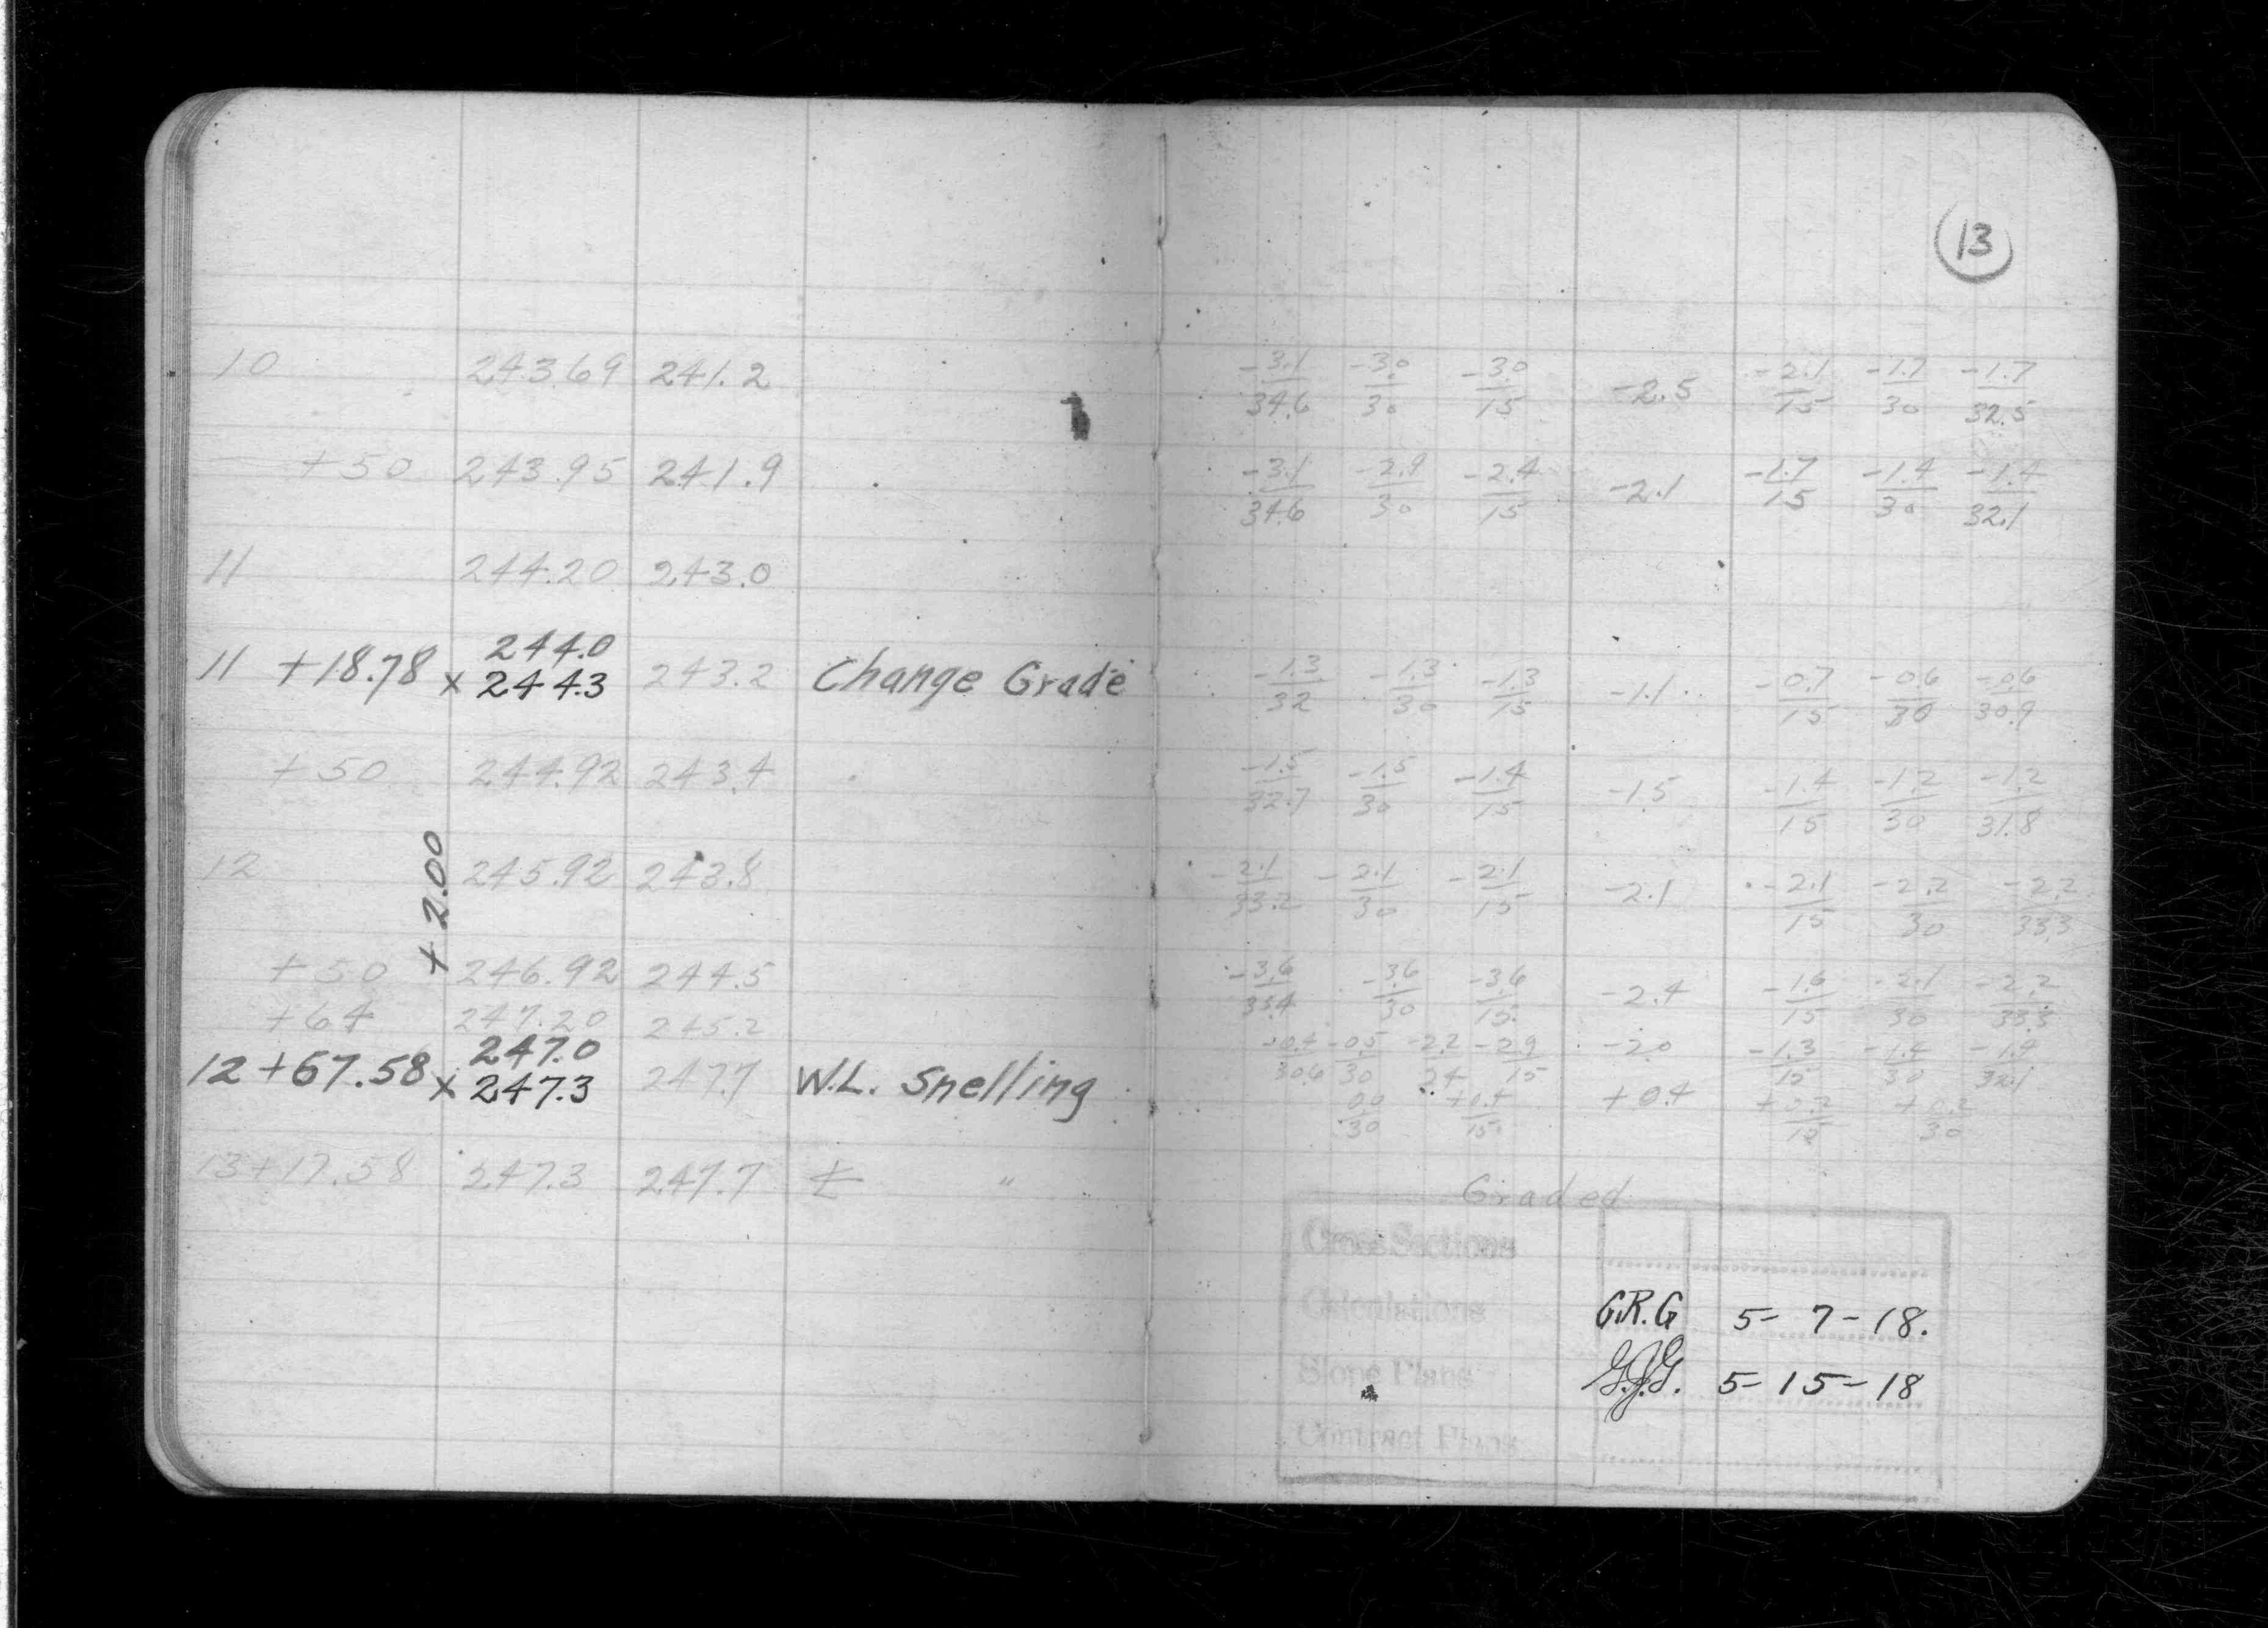 13
10 243.69 241.2 -3.1/34.6 -3.0/30 -3.0/15 -2.5 -2.1/15 -1.7/30 -1.7/32.5
+50 243.95 241.9 -3.1/34.6 -2.9/30 -2.4/15 -2.1 -1.7/15 -1.4/30 -1.4/32.1
11 244.20 243.0
244.0
11 +18.78 x 244.3 243.2 Change Grade -1.3/32 -1.3/30 -1.3/15 -1.1 -0.7/15 -0.6/30 -0.6/30.9
+50 244.92 243.4 -1.5/32.7 -1.5/30 -1.4/15 -1.5 -1.4/15 -1.2/30 -1.2/31.8
+2.00
12 245.92 243.8 -2.1/33.2 -2.1/30 -2.1/15 -2.1 -2.1/15 -2.2/30 -2.2/33.3
+50 246.92 244.5 -3.6/35.4 -3.6/30 -3.6/15 -2.4 -1.6/15 -2.1/30 -2.2/33.3
+64 247.20 245.2 -0.4/30.6 -0.5/30 -2.2/24 -2.9/15 -2.0 -1.3/15 -1.4/30 /32.1
247.0
12 +67.58 x 247.3 247.7 W.L. Snelling 0.0/30 +0.4/15 +0.4 +0.2/15 +0.2/30
13+17.58 247.3 247.7 "
Graded
Cross Sections
Calculations G.R.G 5-7-18.
Slope Plans G.J.G. 5-15-18
Contract Plans